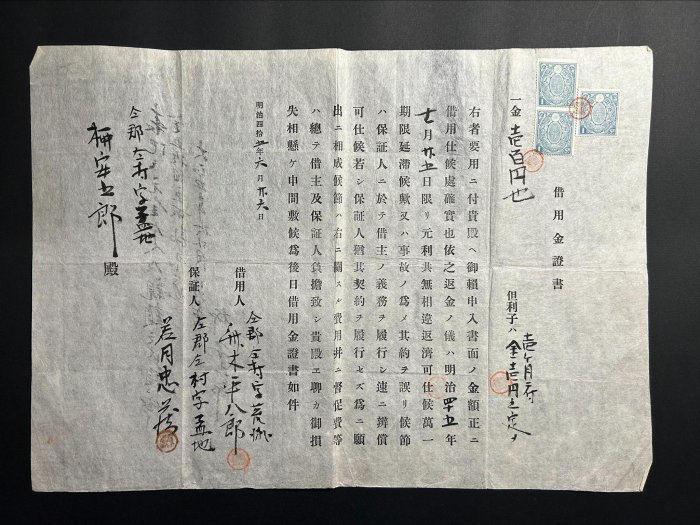 借用金證書
一金 壱百円也
但利子ハ 壱ヶ月ニ付
金壱円之定メ
右者要用ニ付貴殿ヘ御賴申入書面ノ金額正ニ
借用仕候處確實也依之返金ノ儀ハ明治四十五年
七月廿五日限リ元利共無相違返濟可仕候萬一
期限延滯候歟又ハ事故ノ爲メ其約ヲ誤リ候節
ハ保証人ニ於テ借主ノ義務ヲ履行シ速ニ辨償
可仕候若シ保証人猶其契約ヲ履行セズ爲ニ願
出ニ相成候節ハ右ニ關スル費用并ニ督促費等
ハ總テ借主及保証人負擔致シ貴殿ヱ聊カ御損
失相懸ケ申間敷候爲後日借用金證書如件
明治四拾五年六月廿六日
仝郡仝村字
借用人 舟木平八郎
仝郡仝村字孟地
保証人 若月忠
仝郡仝村字孟地
柳安五郎 殿